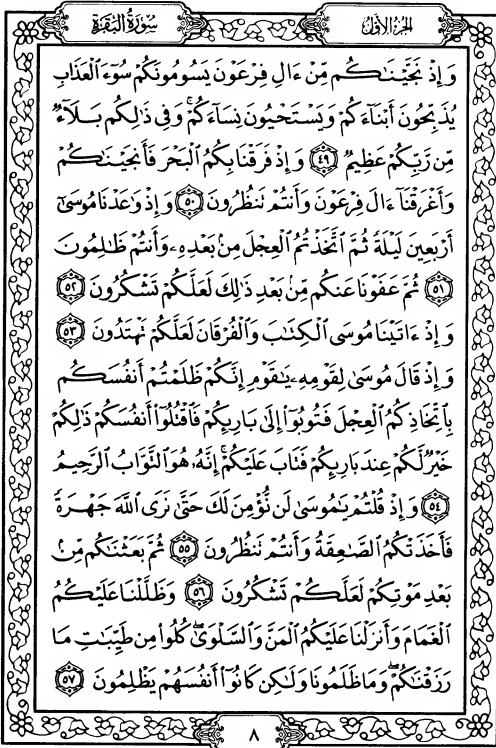 سُورَةُ البَقَرَةِ
الجُزءُ الأوّل
وَإِذْ نَجَّيْنَٰكُم مِّنْ ءَالِ فِرْعَوْنَ يَسُومُونَكُمْ سُوٓءَ الْعَذَابِ
يُذَبِّحُونَ أَبْنَآءَكُمْ وَيَسْتَحْيُونَ نِسَآءَكُمْ ۚ وَفِى ذَٰلِكُم بَلَآءٌ
مِّن رَّبِّكُمْ عَظِيمٌ ٤٩ وَإِذْ فَرَقْنَا بِكُمُ الْبَحْرَ فَأَنجَيْنَٰكُمْ
وَأَغْرَقْنَآ ءَالَ فِرْعَوْنَ وَأَنتُمْ تَنظُرُونَ ٥٠ وَإِذْ وَٰعَدْنَا مُوسَىٰٓ
أَرْبَعِينَ لَيْلَةً ثُمَّ اتَّخَذْتُمُ الْعِجْلَ مِنۢ بَعْدِهِۦ وَأَنتُمْ ظَٰلِمُونَ
٥١ ثُمَّ عَفَوْنَا عَنكُم مِّنۢ بَعْدِ ذَٰلِكَ لَعَلَّكُمْ تَشْكُرُونَ ٥٢
وَإِذْ ءَاتَيْنَا مُوسَى الْكِتَٰبَ وَالْفُرْقَانَ لَعَلَّكُمْ تَهْتَدُونَ ٥٣
وَإِذْ قَالَ مُوسَىٰ لِقَوْمِهِۦ يَٰقَوْمِ إِنَّكُمْ ظَلَمْتُمْ أَنفُسَكُم
بِاتِّخَاذِكُمُ الْعِجْلَ فَتُوبُوٓا۟ إِلَىٰ بَارِئِكُمْ فَاقْتُلُوٓا۟ أَنفُسَكُمْ ذَٰلِكُمْ
خَيْرٌ لَّكُمْ عِندَ بَارِئِكُمْ فَتَابَ عَلَيْكُمْ ۚ إِنَّهُۥ هُوَ التَّوَّابُ الرَّحِيمُ
٥٤ وَإِذْ قُلْتُمْ يَٰمُوسَىٰ لَن نُّؤْمِنَ لَكَ حَتَّىٰ نَرَى اللَّهَ جَهْرَةً
فَأَخَذَتْكُمُ الصَّٰعِقَةُ وَأَنتُمْ تَنظُرُونَ ٥٥ ثُمَّ بَعَثْنَٰكُم مِّنۢ
بَعْدِ مَوْتِكُمْ لَعَلَّكُمْ تَشْكُرُونَ ٥٦ وَظَلَّلْنَا عَلَيْكُمُ
الْغَمَامَ وَأَنزَلْنَا عَلَيْكُمُ الْمَنَّ وَالسَّلْوَىٰ ۖ كُلُوا۟ مِن طَيِّبَٰتِ مَا
رَزَقْنَٰكُمْ ۖ وَمَا ظَلَمُونَا وَلَٰكِن كَانُوٓا۟ أَنفُسَهُمْ يَظْلِمُونَ ٥٧
٨